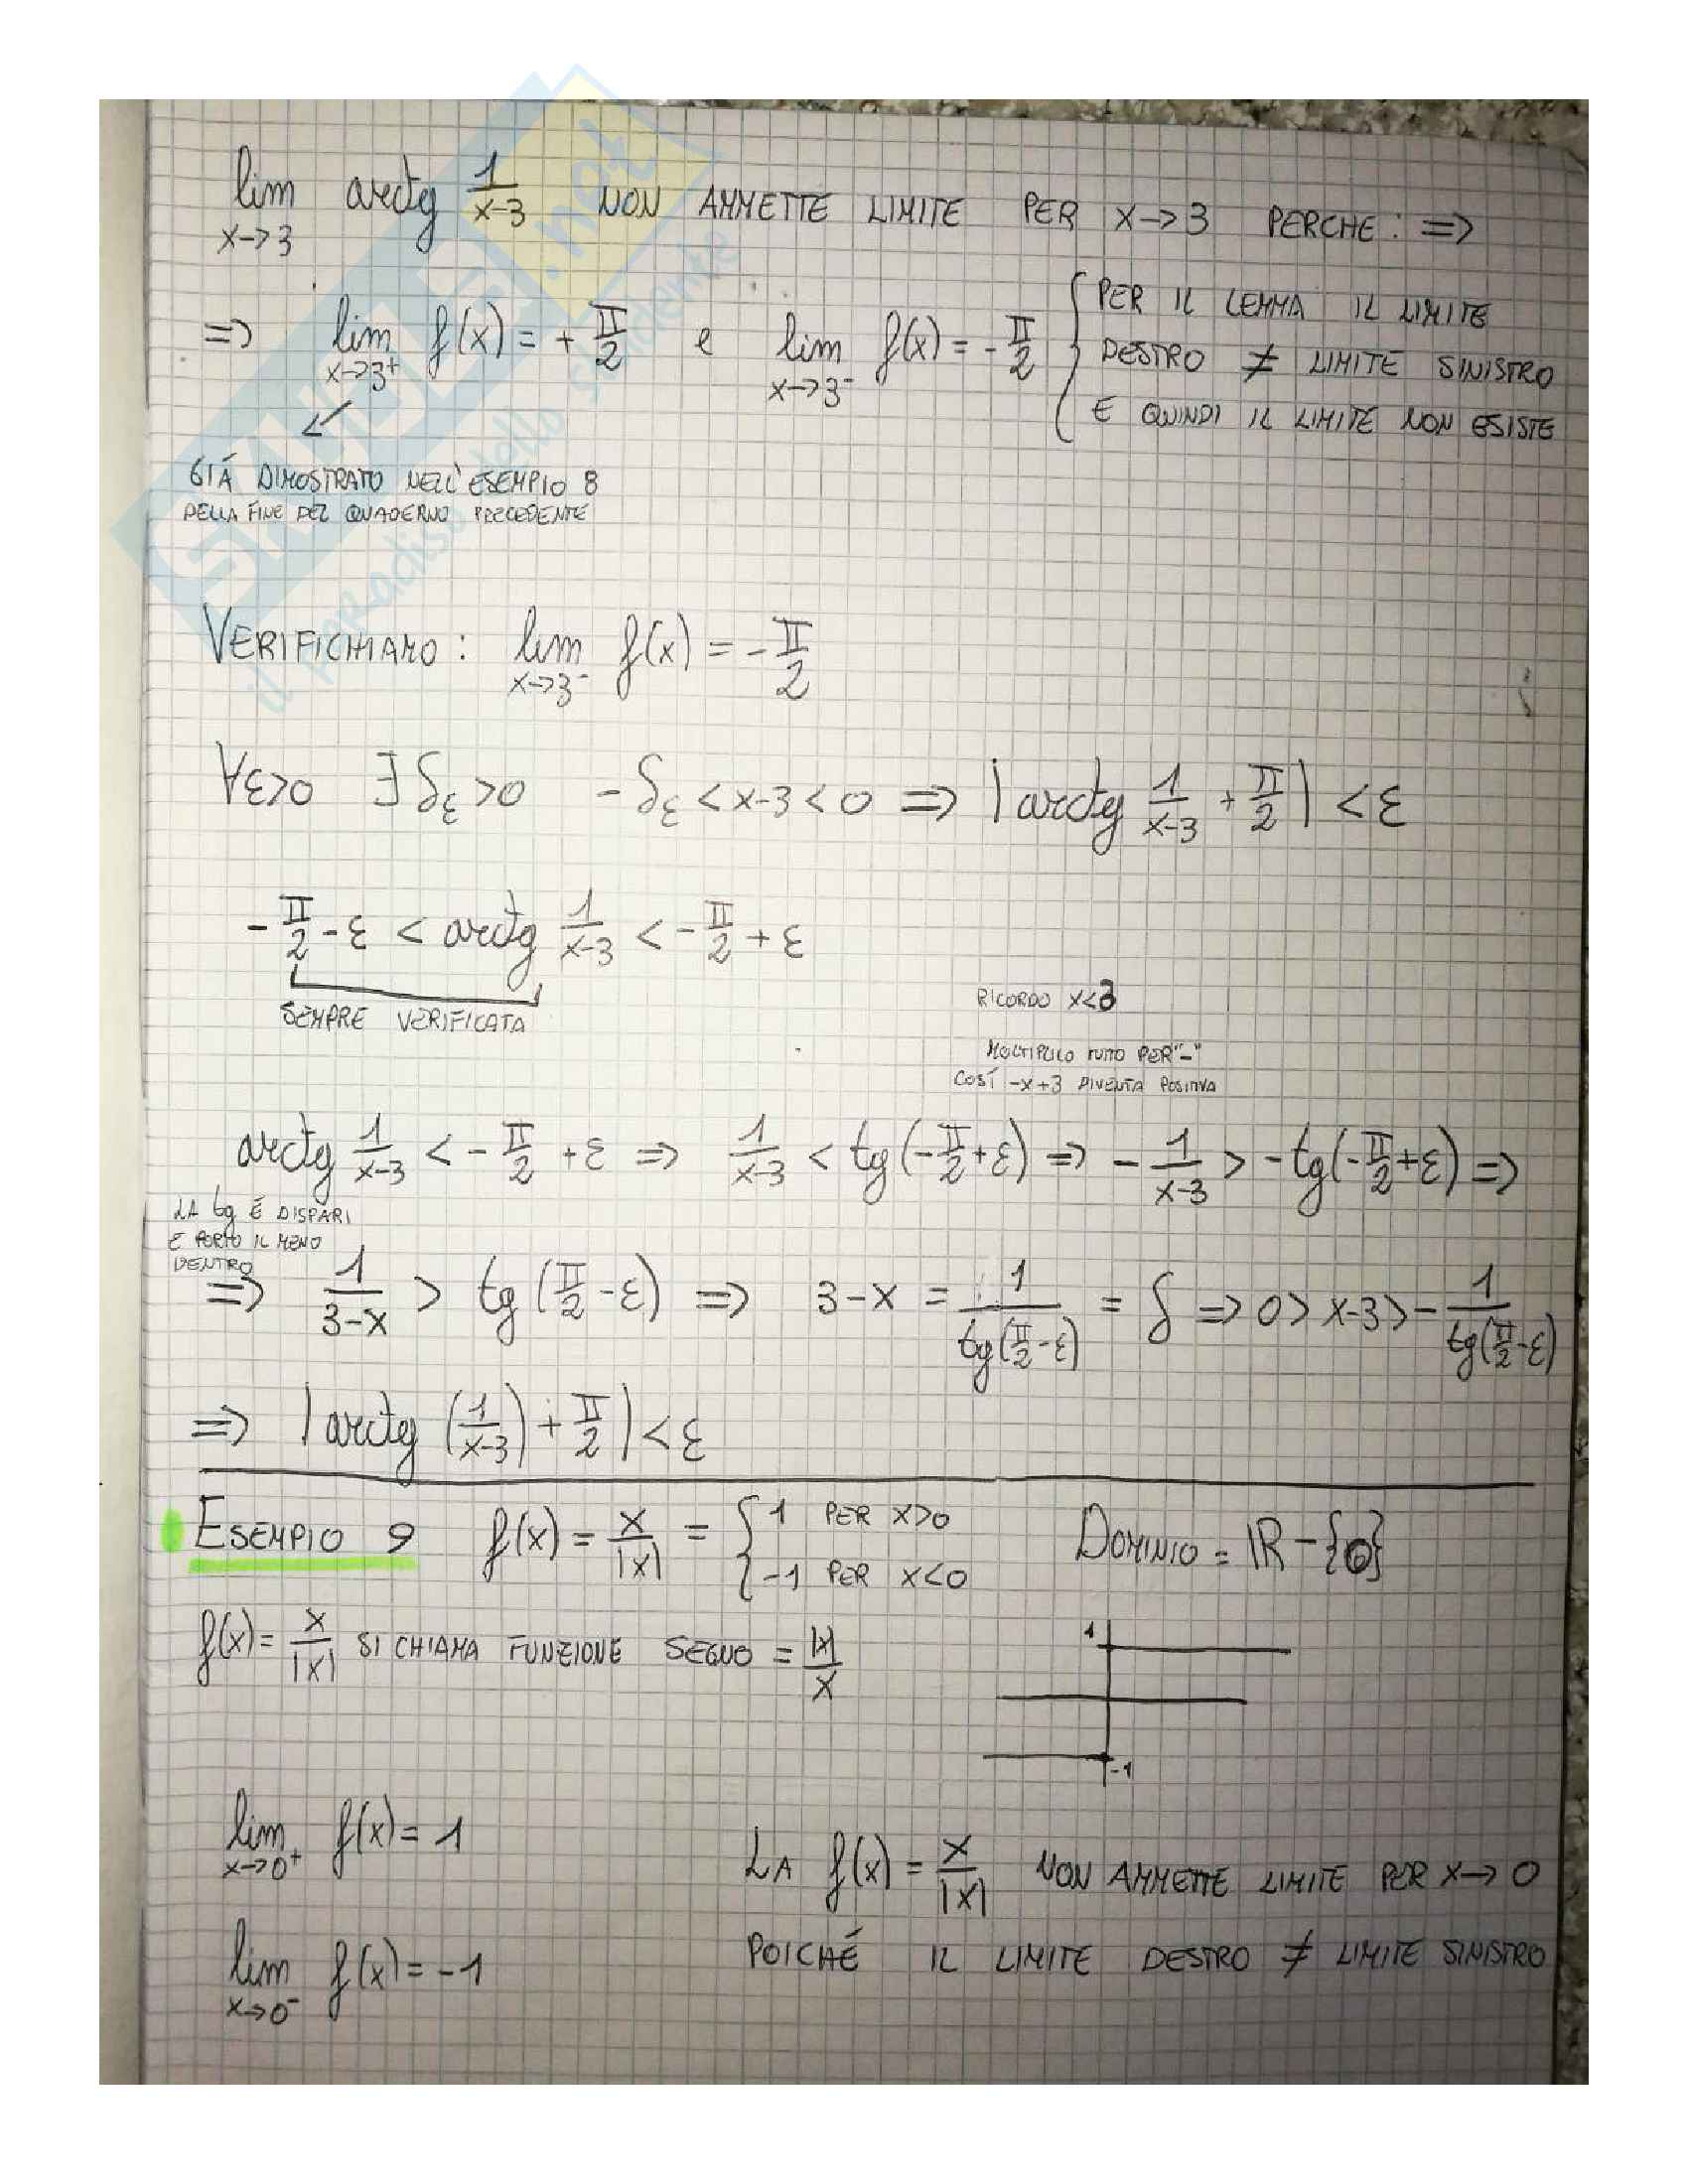 lim arctg 1/(x-3) NON AMMETTE LIMITE PER x→3 PERCHE: =>
x→3
=> lim f(x) = + π/2 e lim f(x) = - π/2 { PER IL LEMMA IL LIMITE
x→3⁺ x→3⁻ DESTRO ≠ LIMITE SINISTRO
E QUINDI IL LIMITE NON ESISTE
GIÁ DIMOSTRATO NELL'ESEMPIO 8
DELLA FINE DEL QUADERNO PRECEDENTE
VERIFICHIAMO: lim f(x) = - π/2
x→3⁻
∀ε>0 ∃ δε >0 -δε < x-3 < 0 => | arctg 1/(x-3) + π/2 | < ε
- π/2 - ε < arctg 1/(x-3) < - π/2 + ε
SEMPRE VERIFICATA
RICORDO x<3
MOLTIPLICO TUTTO PER "-"
COSÍ -x+3 DIVENTA POSITIVA
arctg 1/(x-3) < - π/2 + ε => 1/(x-3) < tg(-π/2+ε) => - 1/(x-3) > -tg(-π/2+ε) =>
LA tg É DISPARI
E PORTO IL MENO
DENTRO
=> 1/(3-x) > tg(π/2-ε) => 3-x = 1/tg(π/2-ε) = δ => 0 > x-3 > - 1/tg(π/2-ε)
=> | arctg (1/(x-3)) + π/2 | < ε
ESEMPIO 9 f(x) = x/|x| = { 1 PER x>0 DOMINIO = ℝ - {0}
-1 PER x<0
f(x) = x/|x| SI CHIAMA FUNZIONE SEGNO = |x|/x
1
-1
lim f(x) = 1
x→0⁺
LA f(x) = x/|x| NON AMMETTE LIMITE PER x→0
POICHÉ IL LIMITE DESTRO ≠ LIMITE SINISTRO
lim f(x) = -1
x→0⁻
SKUOLA.net
il paradiso dello studente